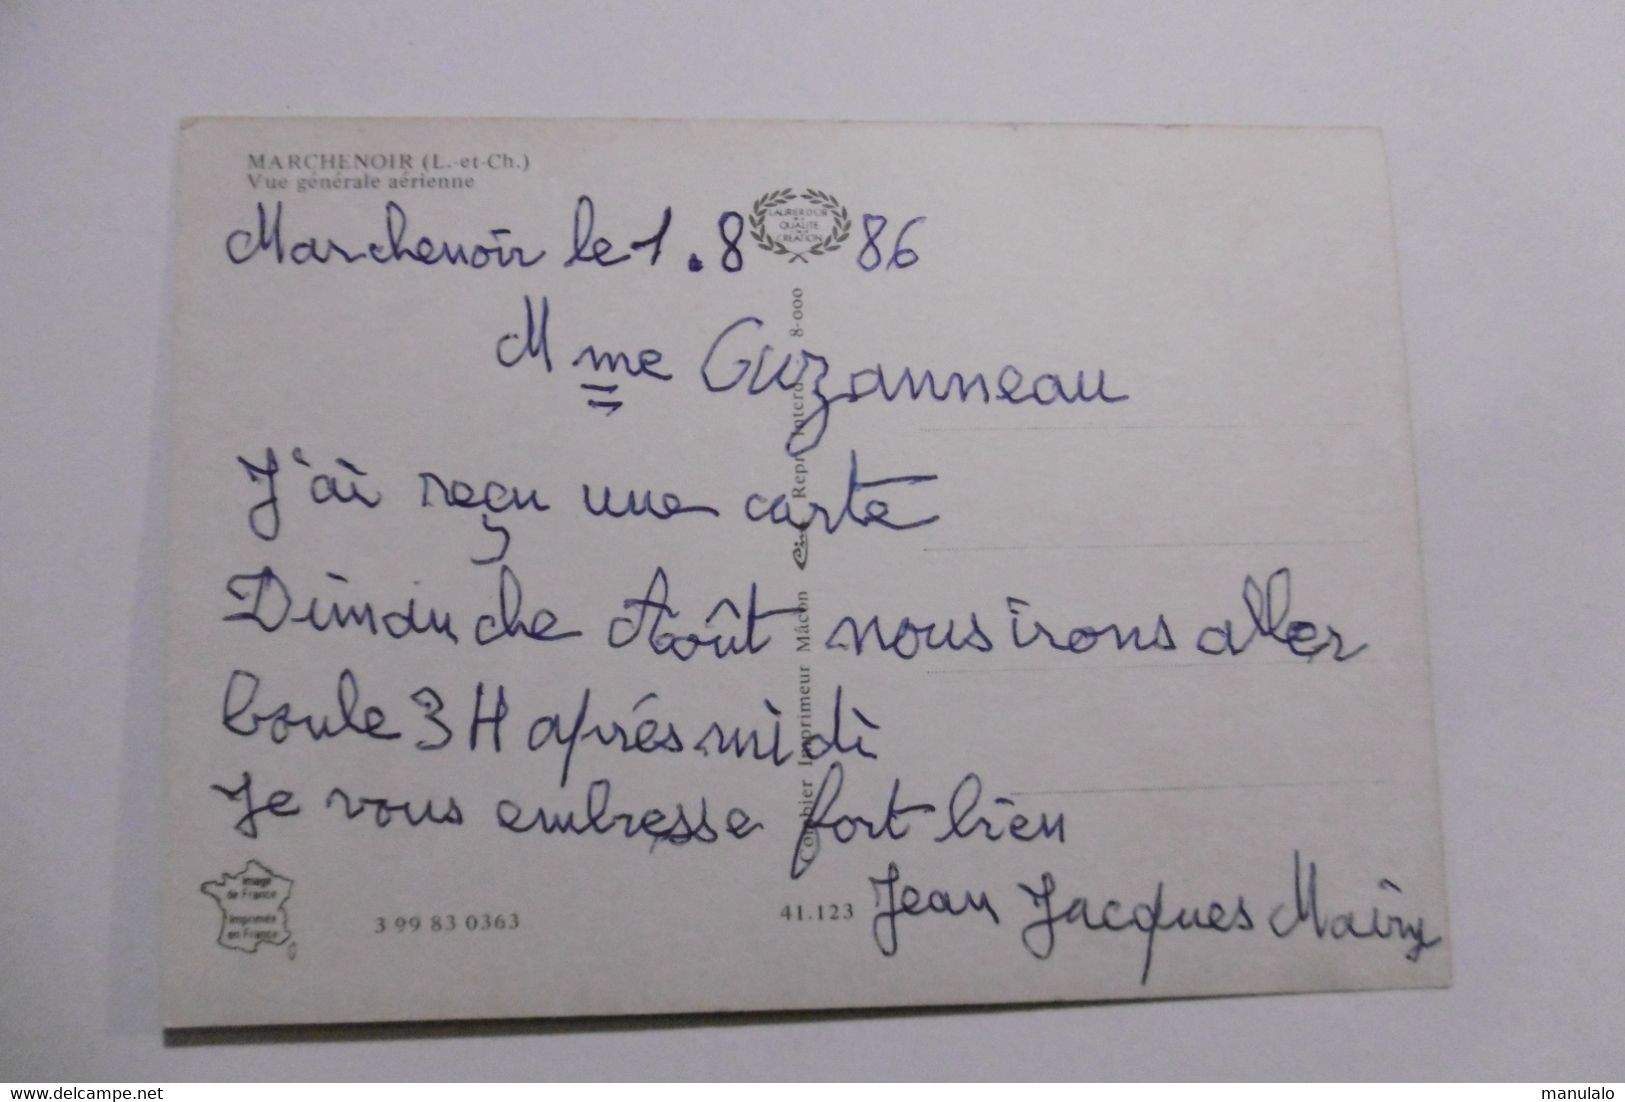 MARCHENOIR (L.-et-Ch.)
Vue générale aérienne
LAURIER D'OR
QUALITÉ
CRÉATION
Marchenoir le 1.8 86
Mme Guzanneau
J'ai reçu une carte
Dimanche Août nous irons aller
boule 3H aprés midi
Je vous embresse fort bien
Jean Jacques Mairy
Combier Imprimeur Mâcon Repr. Interd. 8-000
image
de France
imprimée
en France
3 99 83 0363
41.123
www.delcampe.net
manulalo